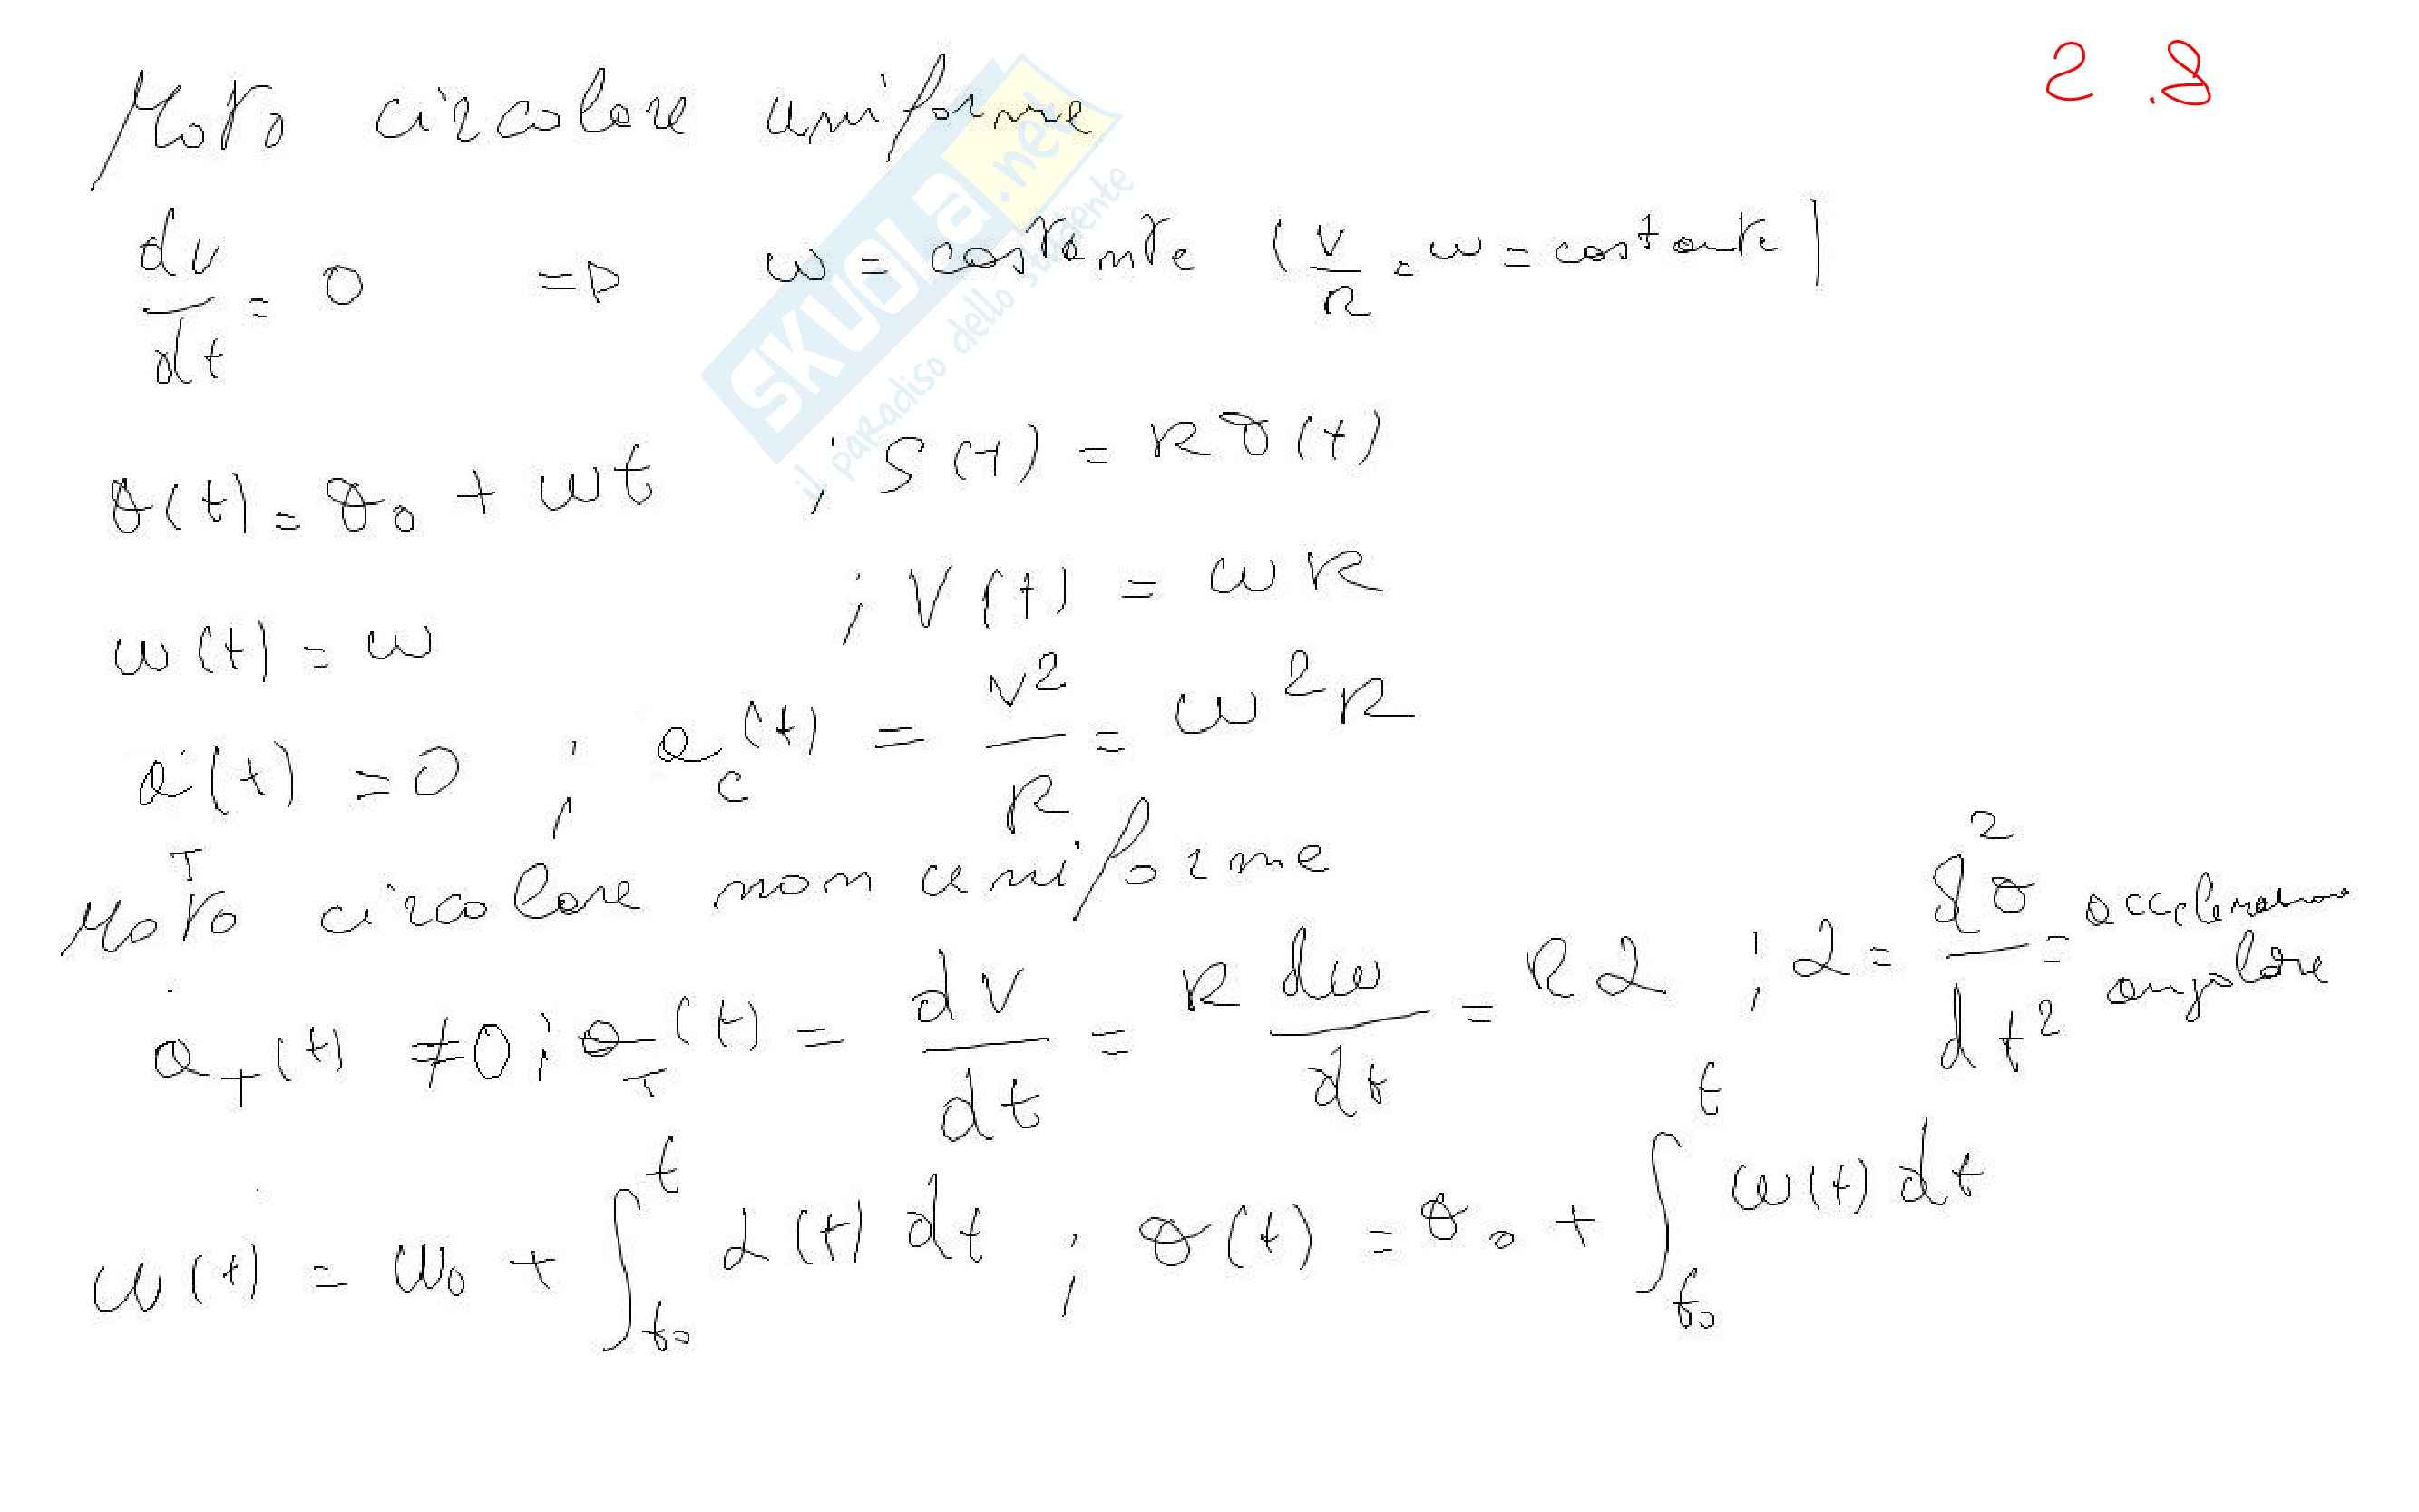 2.8
Moto circolare uniforme
dv/dt = 0 => ω = costante (v/R = ω = costante)
θ(t) = θ₀ + ωt ; S(t) = Rθ(t)
ω(t) = ω ; V(t) = ωR
a_T(t) = 0 ; a_c(t) = v²/R = ω²R
Moto circolare non uniforme
a_T(t) ≠ 0 ; a_T(t) = dv/dt = R dω/dt = Rα ; α = d²θ/dt² = accelerazione angolare
ω(t) = ω₀ + ∫_{t₀}^{t} α(t) dt ; θ(t) = θ₀ + ∫_{t₀}^{t} ω(t) dt
SKUOLA.net
il paradiso dello studente